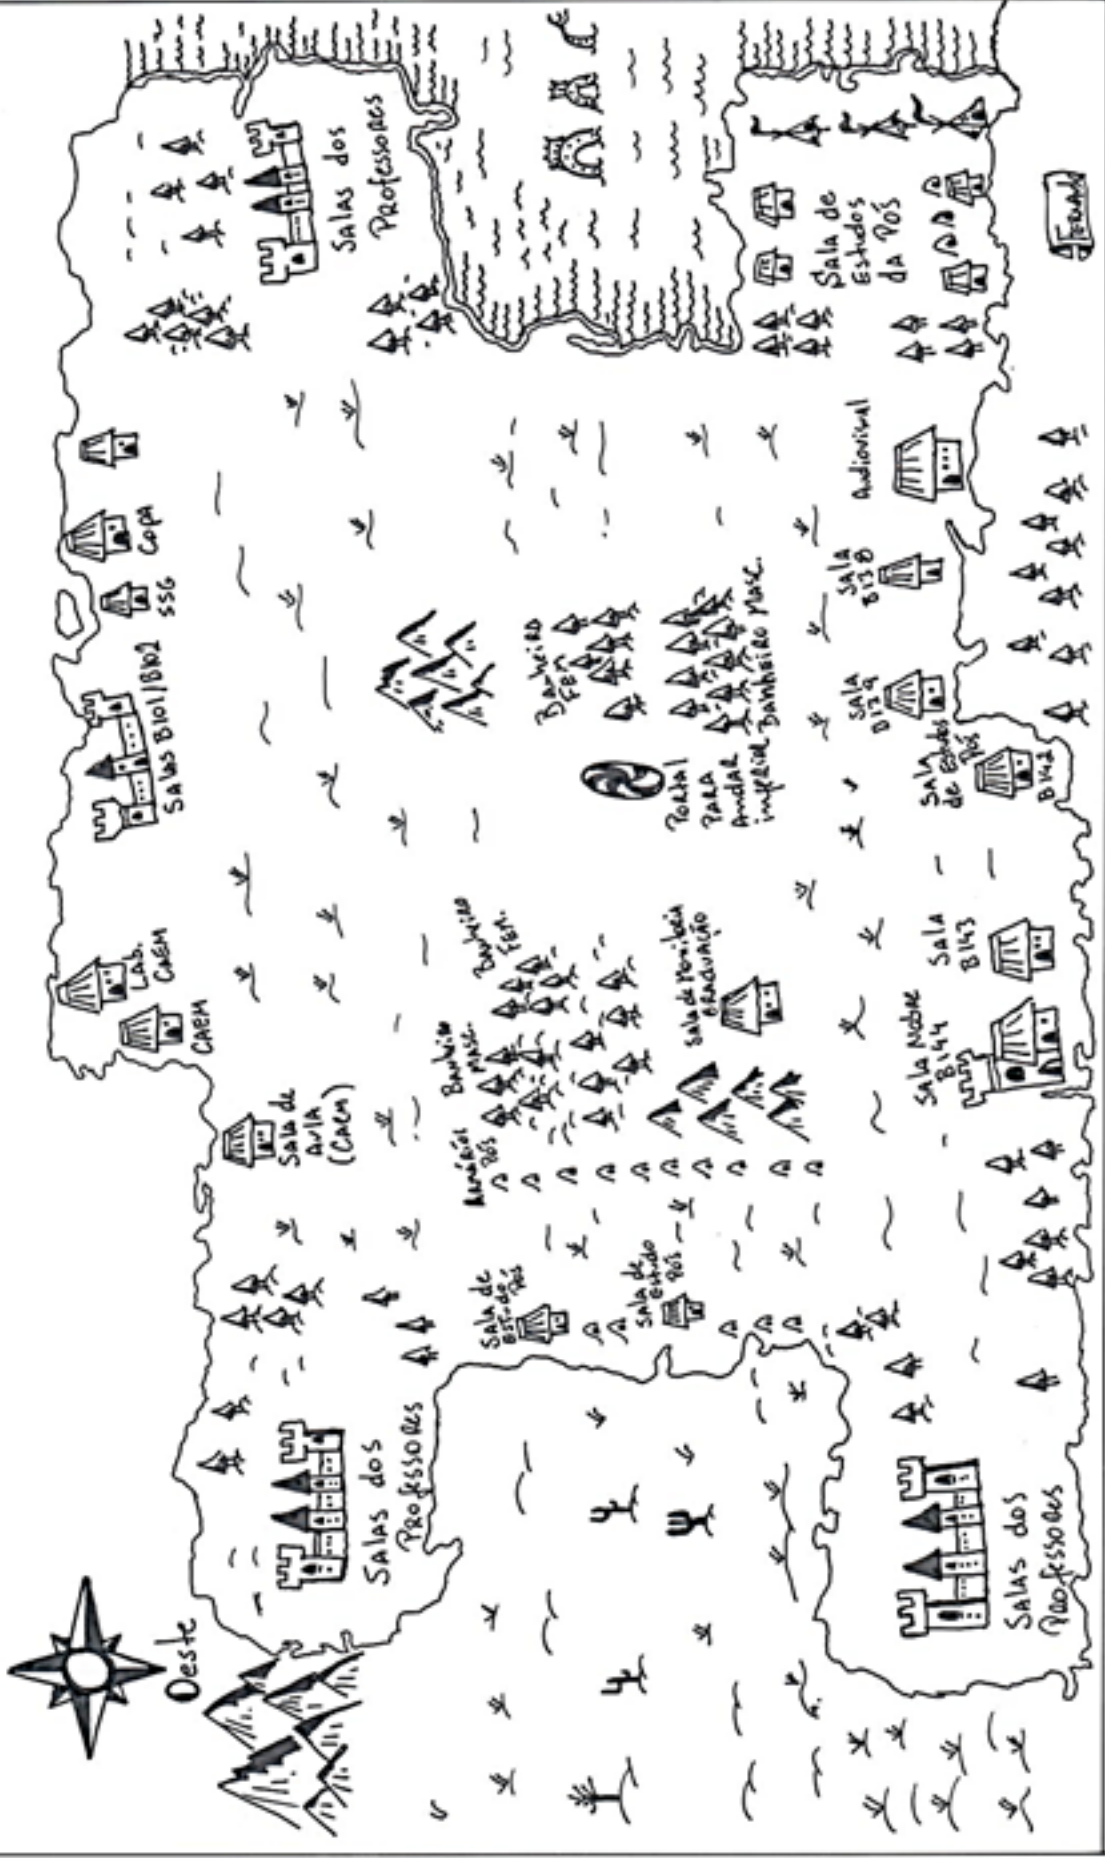 Oeste
Salas dos
Professores
Sala de
Aula
(CAEM)
CAEM
Lab.
CAEM
Salas B101/B102
SSG
Copa
Salas dos
Professores
Sala de
Estudo
Pós
Armários
Pós
Banheiro
Masc.
Banheiro
Fem.
Banheiro
Fem
Sala de
Estudo
Pós
Sala de Monitoria
Graduação
Portal
Para
Andar
inferior
Banheiro Masc.
Salas dos
Professores
Sala Nobre
B144
Sala
B143
Sala
de Estudos
Pós
B142
Sala
B139
Sala
B138
Audiovisual
Sala de
Estudos
da Pós